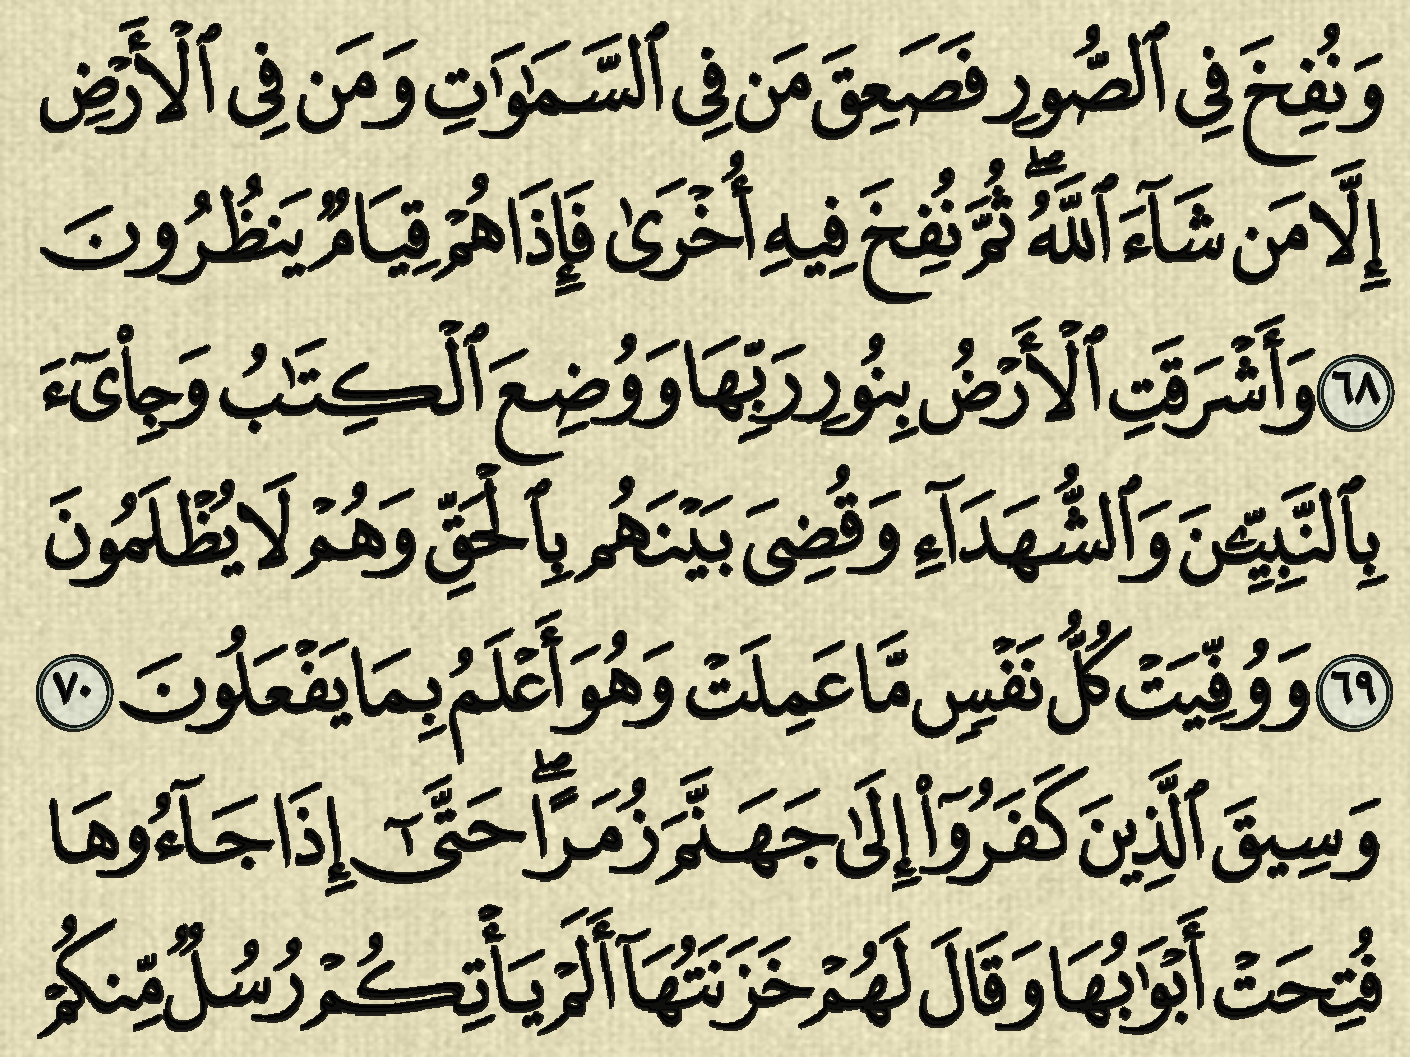 وَنُفِخَ فِى ٱلصُّورِ فَصَعِقَ مَن فِى ٱلسَّمَٰوَٰتِ وَمَن فِى ٱلْأَرْضِ
إِلَّا مَن شَآءَ ٱللَّهُ ۖ ثُمَّ نُفِخَ فِيهِ أُخْرَىٰ فَإِذَا هُمْ قِيَامٌ يَنظُرُونَ
٦٨ وَأَشْرَقَتِ ٱلْأَرْضُ بِنُورِ رَبِّهَا وَوُضِعَ ٱلْكِتَٰبُ وَجِا۟ىٓءَ
بِٱلنَّبِيِّۦنَ وَٱلشُّهَدَآءِ وَقُضِىَ بَيْنَهُم بِٱلْحَقِّ وَهُمْ لَا يُظْلَمُونَ
٦٩ وَوُفِّيَتْ كُلُّ نَفْسٍ مَّا عَمِلَتْ وَهُوَ أَعْلَمُ بِمَا يَفْعَلُونَ ٧٠
وَسِيقَ ٱلَّذِينَ كَفَرُوٓا۟ إِلَىٰ جَهَنَّمَ زُمَرًا ۖ حَتَّىٰٓ إِذَا جَآءُوهَا
فُتِحَتْ أَبْوَٰبُهَا وَقَالَ لَهُمْ خَزَنَتُهَآ أَلَمْ يَأْتِكُمْ رُسُلٌ مِّنكُمْ